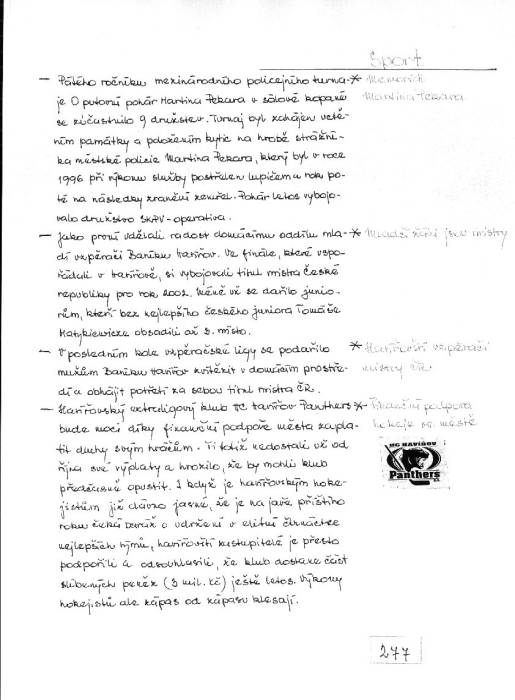 Sport
— Pátého ročníku mezinárodního policejního turna- * Memoriál
je O putovní pohár Martina Pekara v sálové kopané Martina Pekara
se zúčastnilo 9 družstev. Turnaj byl zahájen veče-
ním památky a položením kytic na hrobě strážní-
ka městské policie Martina Pekara, který byl v roce
1996 při výkonu služby postřelen lupičem a rok po-
té na následky zranění zemřel. Pohár letos vybojo-
valo družstvo SKPV-operativa.
— Jako první udělali radost domácímu oddílu mla- * Mladší žáci jsou mistry
dí vzpěrači Baníku Havířov. Ve finále, které uspo-
řádali v Havířově, si vybojovali titul mistra České
republiky pro rok 2002. Méně už se dařilo junio-
rům, kteří bez nejlepšího českého juniora Tomáše
Matykiewicze obsadili až 3. místo.
— V posledním kole vzpěračské ligy se podařilo * Havířovští vzpěrači
mužům Baníku Havířov zvítězit v domácím prostře- mistry ČR
dí a obhájit potřetí za sebou titul mistra ČR.
— Havířovský extraligový klub HC Havířov Panthers * Finanční podpora
bude moci díky finanční podpoře města zapla- hokeje ve městě
tit dluhy svým hráčům. Ti totiž nedostali už od
října své výplaty a hrozilo, že by mohli klub
předčasně opustit. I když je havířovským hoke-
jistům již dávno jasné, že je na jaře příštího
roku čeká baráž o udržení v elitní čtrnáctce
nejlepších týmů, havířovští zastupitelé je přesto
podpořili a odsouhlasili, že klub dostane část
slíbených peněz (3 mil. Kč) ještě letos. Výkony
hokejistů ale zápas od zápasu klesají.
HC HAVÍŘOV
Panthers
277